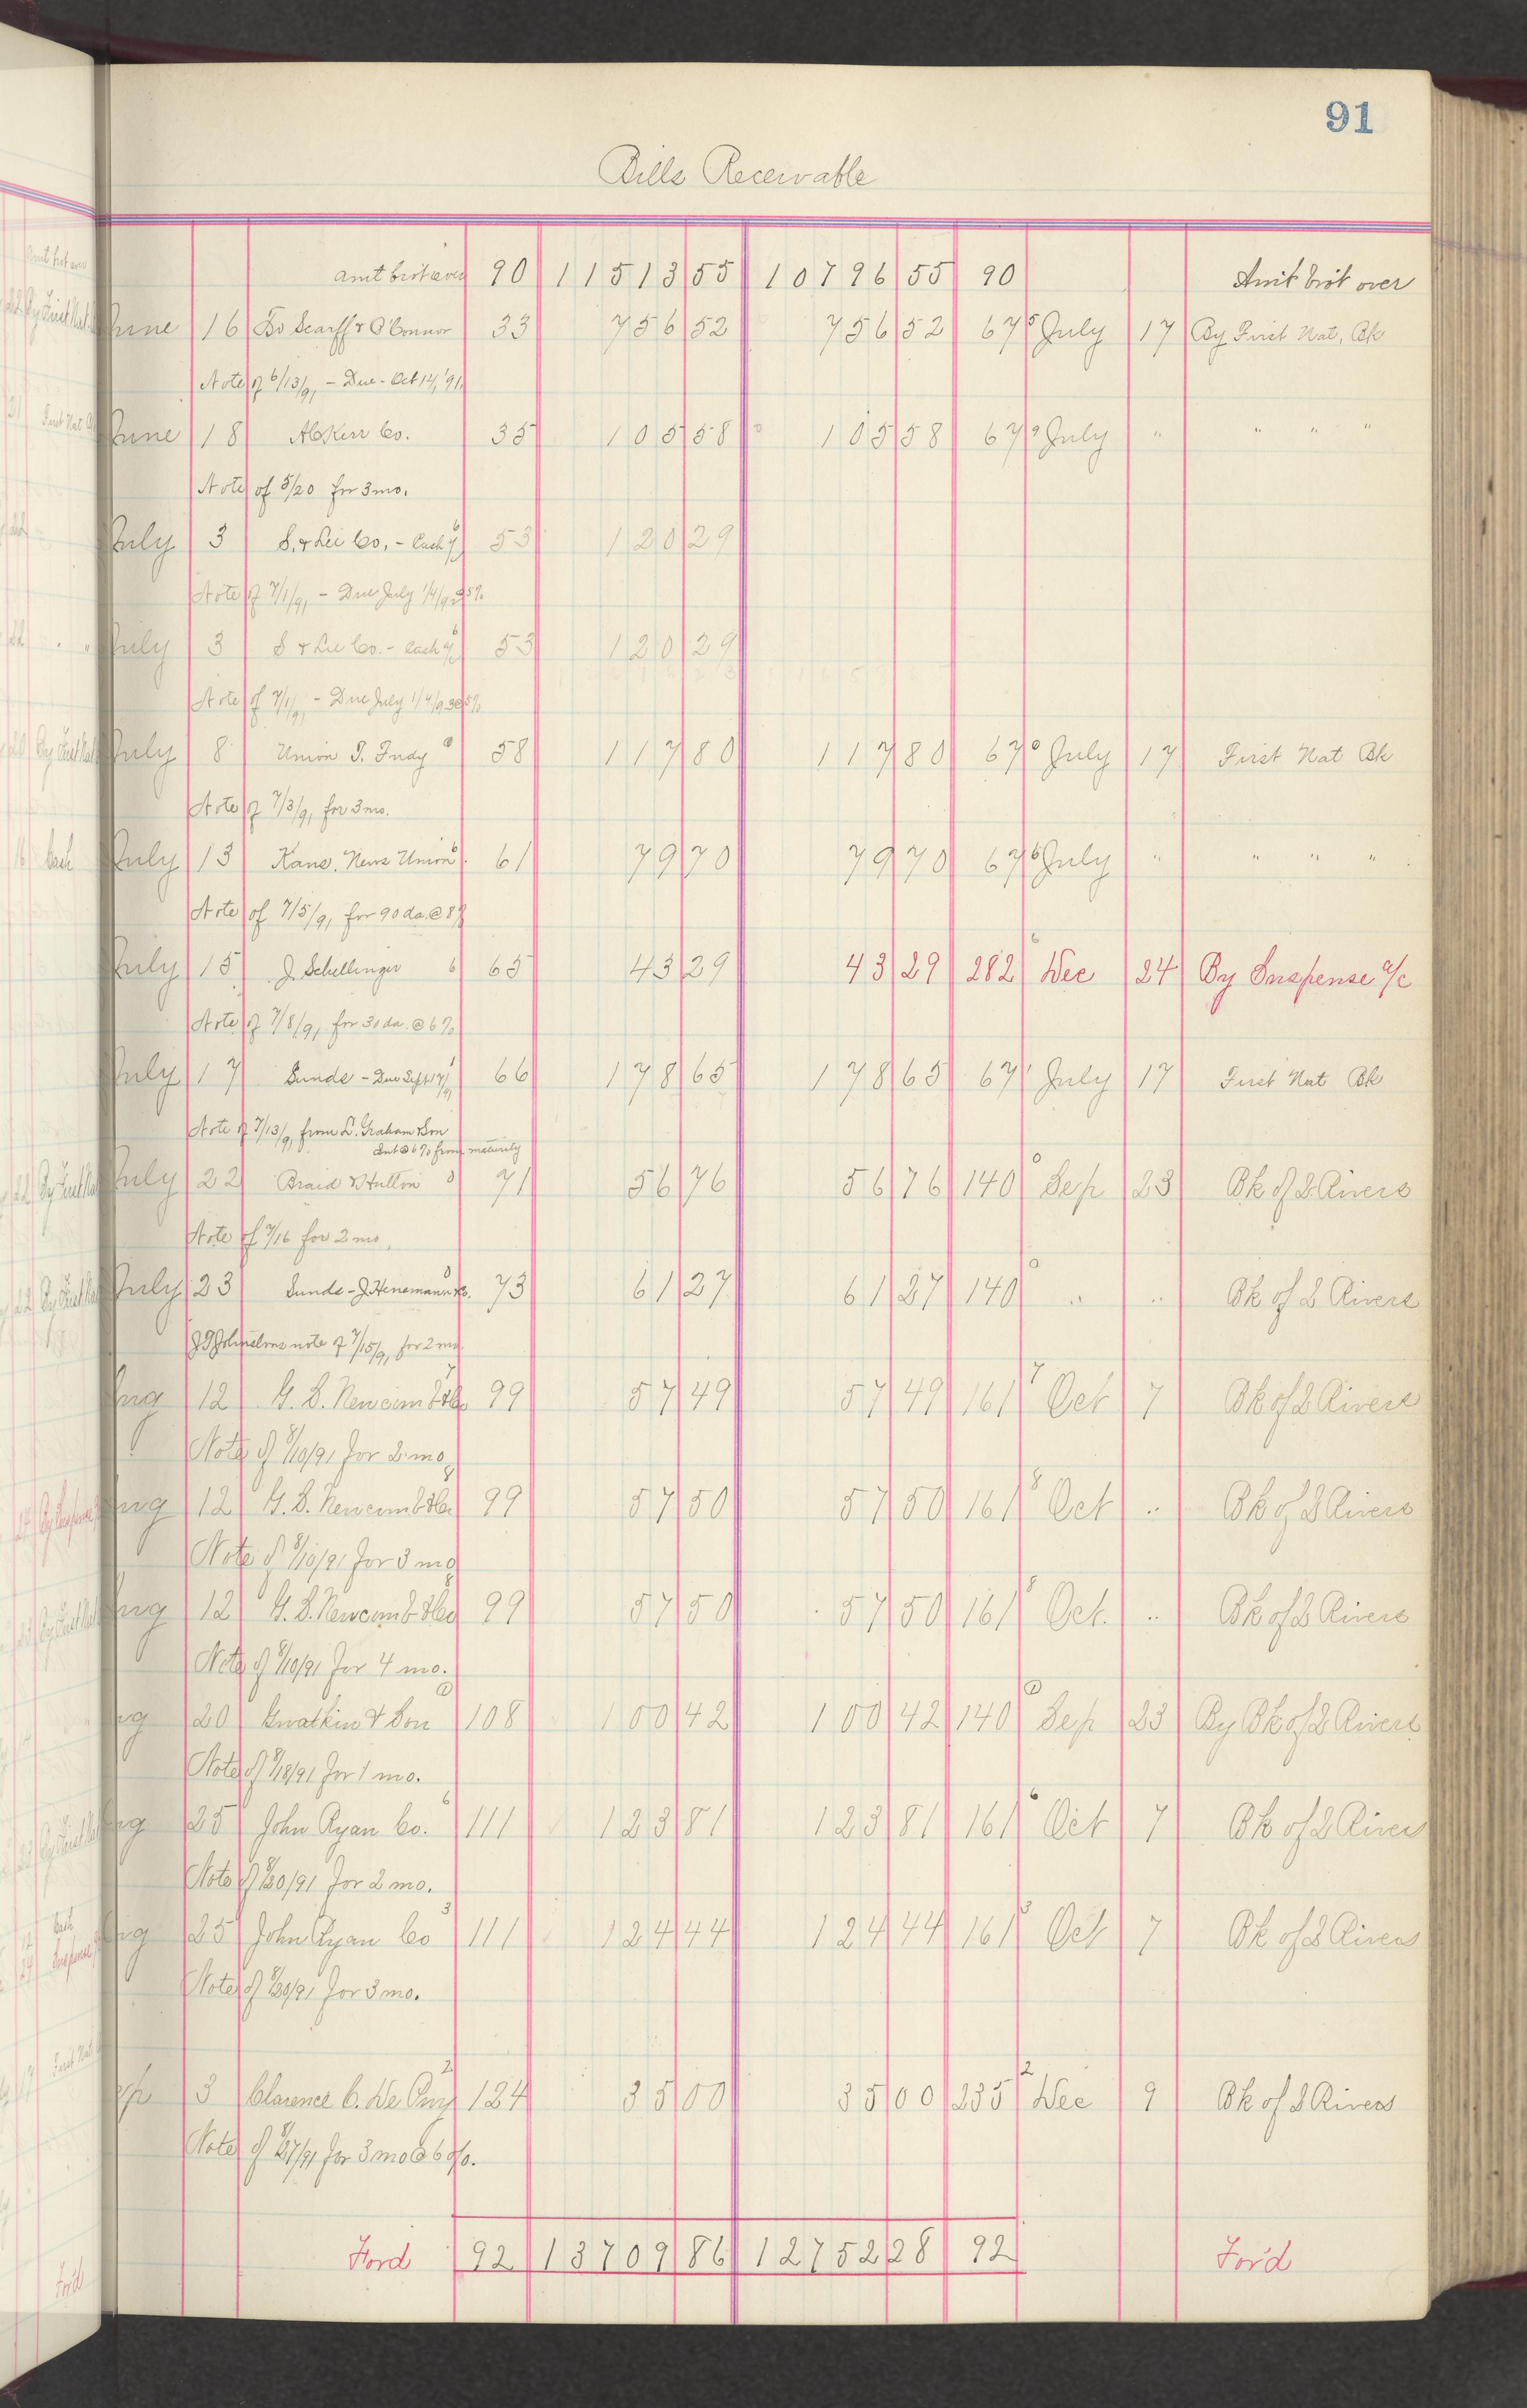 91
Bills Receivable
Amt brot over 90 11513 55 10796 55 90 Amt brot over
June 16 To Scarff & O'Connor 33 756 52 756 52 67 5 July 17 By First Nat. Bk
Note of 6/13/91 - Due - Oct 14, '91
June 18 AC Kerr Co. 35 105 58 105 58 67 9 July " " " "
Note of 5/20 for 3 mo.
July 3 S. & Lee Co. - Each 6 53 120 29
Note of 7/1/91 - Due July 1/4/92 @ 5%
July 3 S & Lee Co. - Each 6 53 120 29
Note of 7/1/91 - Due July 1/4/93 @ 5%
July 8 Union P. Indy 0 58 117 80 117 80 67 0 July 17 First Nat Bk
Note of 7/3/91 for 3 mo.
July 13 Kans. News Union 6 61 79 70 79 70 67 6 July " " " "
Note of 7/5/91 for 90 da. @ 8%
July 15 J. Schellinger 6 65 43 29 43 29 282 6 Dec 24 By Suspense a/c
Note of 7/8/91 for 30 da. @ 6%
July 17 Sunds - Due Sept 17/91 1 66 178 65 178 65 67 1 July 17 First Nat Bk
Note of 7/13/91 from L. Graham & Son
Int @ 6% from maturity
July 22 Braid & Hutton 71 56 76 56 76 140 0 Sep 23 Bk of 2 Rivers
Note of 7/16 for 2 mo.
July 23 Sunds - J. Heinemann & Co. 0 73 61 27 61 27 140 0 " " Bk of 2 Rivers
J S Johnstons note of 7/15/91 for 2 mo.
Aug 12 G. S. Newcomb & Co 7 99 57 49 57 49 161 7 Oct 7 Bk of 2 Rivers
Note of 8/10/91 for 2 mo
Aug 12 G. S. Newcomb & Co 8 99 57 50 57 50 161 8 Oct " Bk of 2 Rivers
Note of 8/10/91 for 3 mo
Aug 12 G. S. Newcomb & Co 8 99 57 50 57 50 161 8 Oct. " Bk of 2 Rivers
Note of 8/10/91 for 4 mo.
Aug 20 Gwatkin & Son 1 108 100 42 100 42 140 1 Sep 23 By Bk of 2 Rivers
Note of 8/18/91 for 1 mo.
Aug 25 John Ryan Co. 6 111 123 81 123 81 161 6 Oct 7 Bk of 2 Rivers
Note of 8/20/91 for 2 mo.
Aug 25 John Ryan Co 3 111 124 44 124 44 161 3 Oct 7 Bk of 2 Rivers
Note of 8/20/91 for 3 mo.
Sep 3 Clarence C. De Puy 2 124 35 00 35 00 235 2 Dec 9 Bk of 2 Rivers
Note of 8/27/91 for 3 mo @ 6 %.
Ford 92 13709 86 12752 28 92 For'd